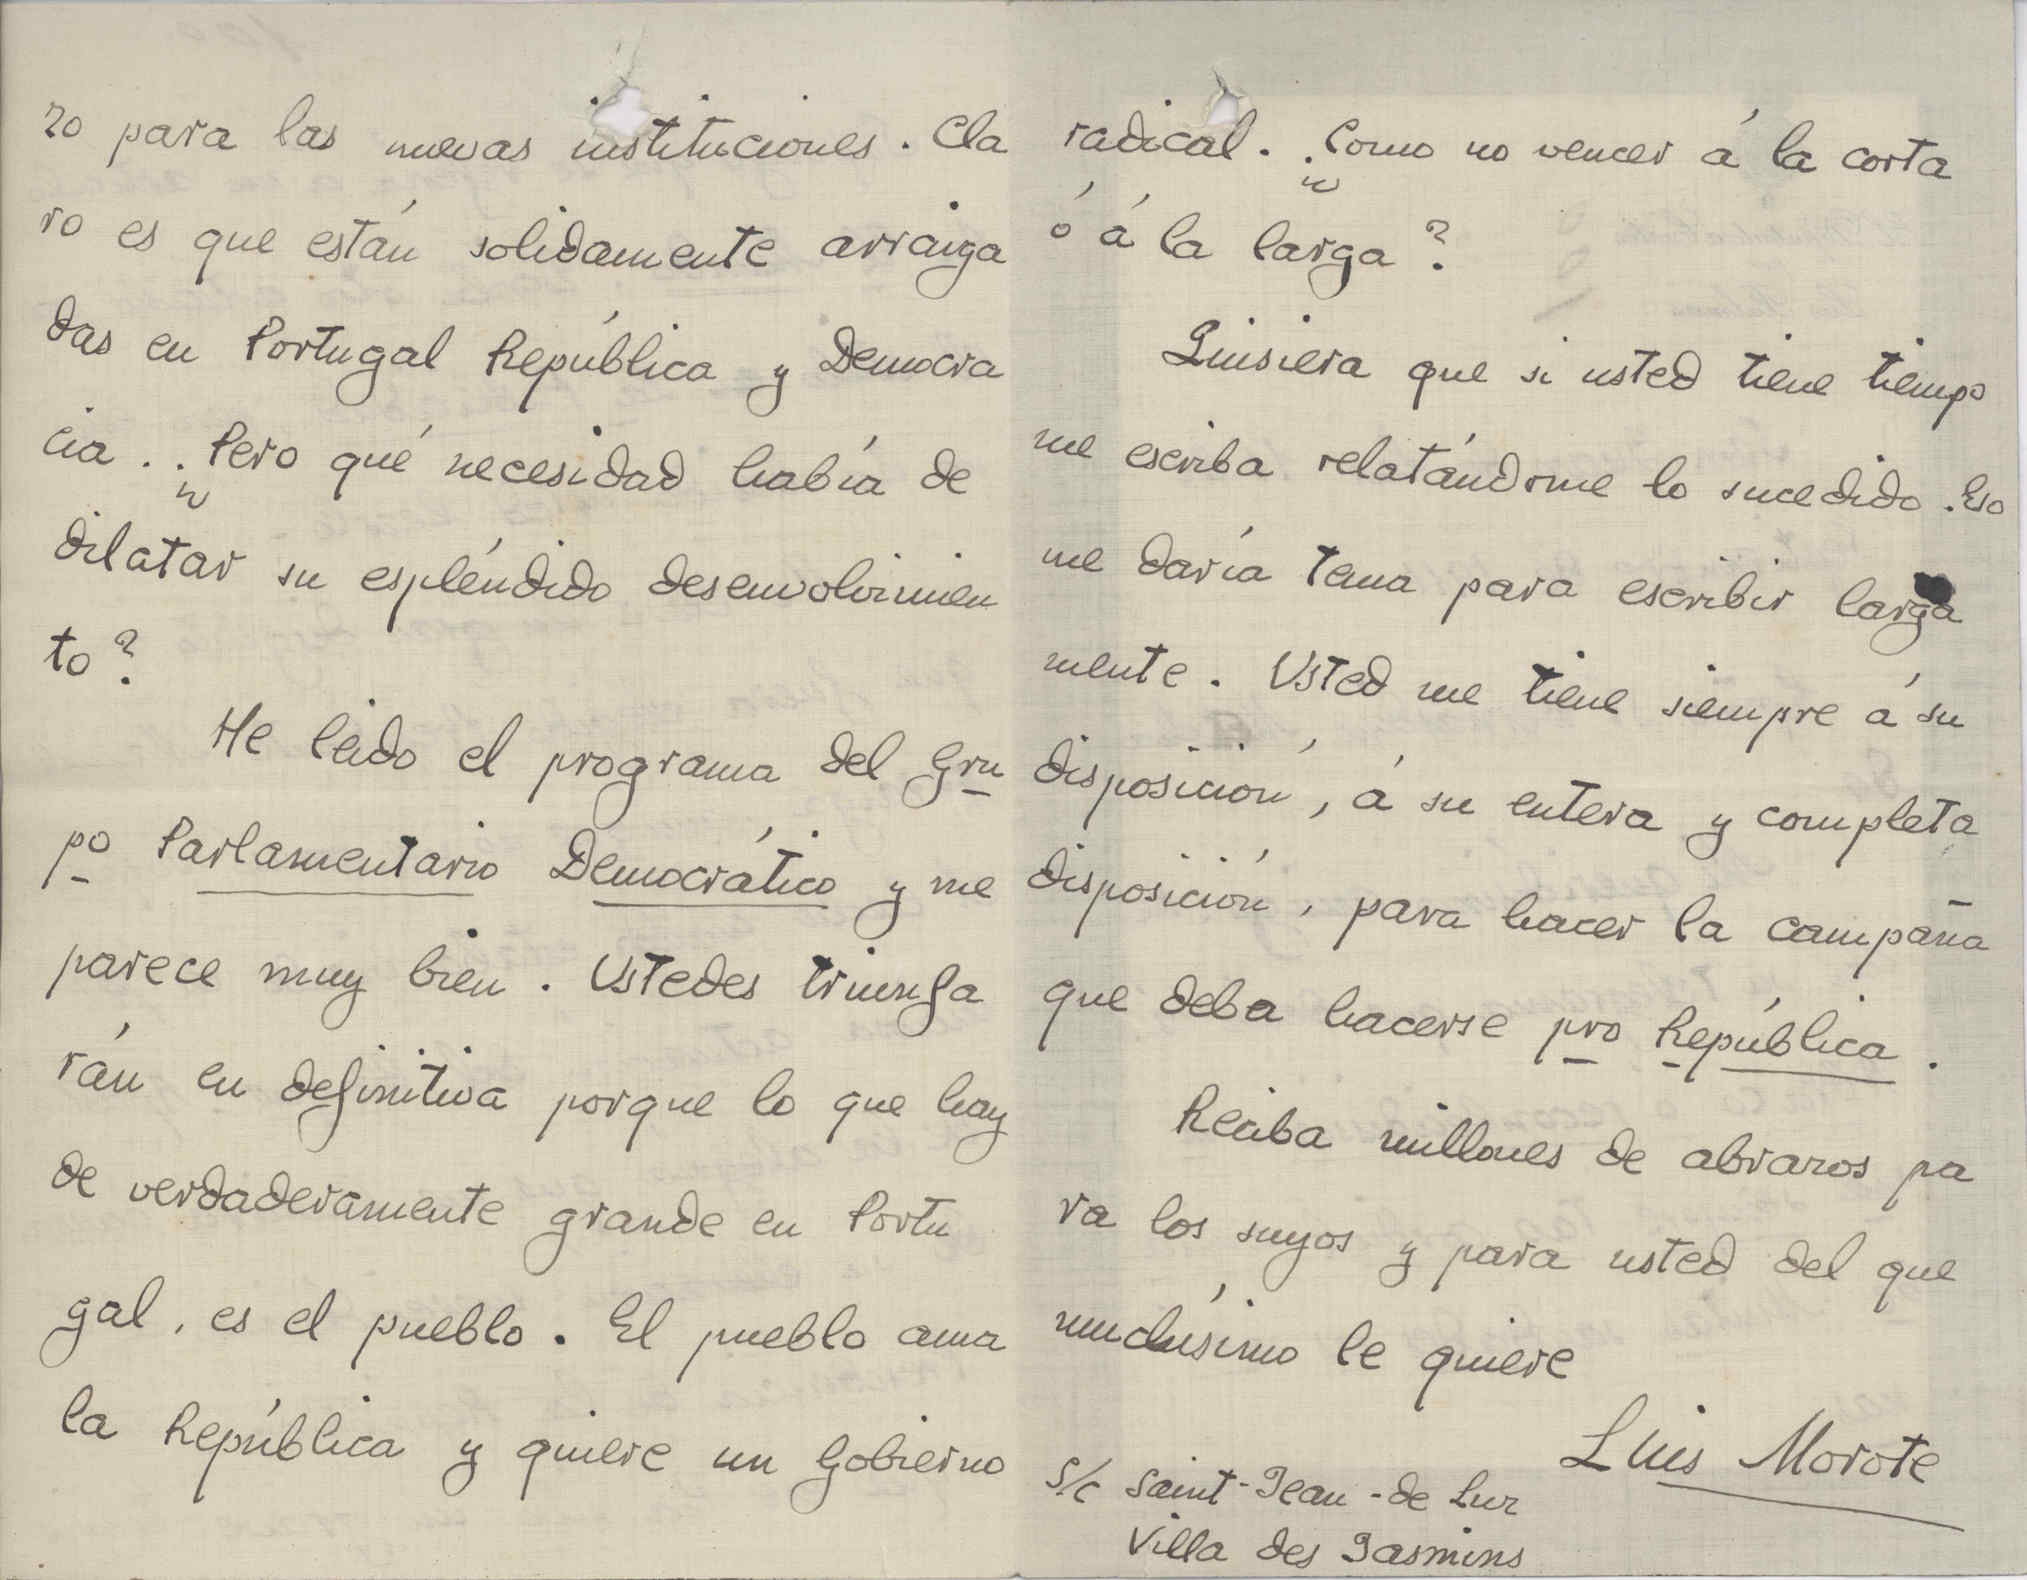 ro para las nuevas instituciones. Cla
ro es que están solidamente arraiga
das en Portugal República y Democra
cia. ¿Pero qué necesidad había de
dilatar su espléndido desenvolvimien
to?
He leido el programa del Gru
po Parlamentario Democrático y me
parece muy bien. Ustedes triunfa
rán en definitiva porque lo que hay
de verdaderamente grande en Portu
gal, es el pueblo. El pueblo ama
la República y quiere un Gobierno
radical. ¿Como no vencer á la corta
ó á la larga?
Quisiera que si usted tiene tiempo
me escriba relatándome lo sucedido. Eso
me daría tema para escribir larga
mente. Usted me tiene siempre á su
disposición, á su entera y completa
disposición, para hacer la campaña
que deba hacerse pro República.
Reciba millones de abrazos pa
ra los suyos y para usted del que
muchísimo le quiere
Luis Morote
S/c Saint-Jean-de Luz
Villa des Jasmins